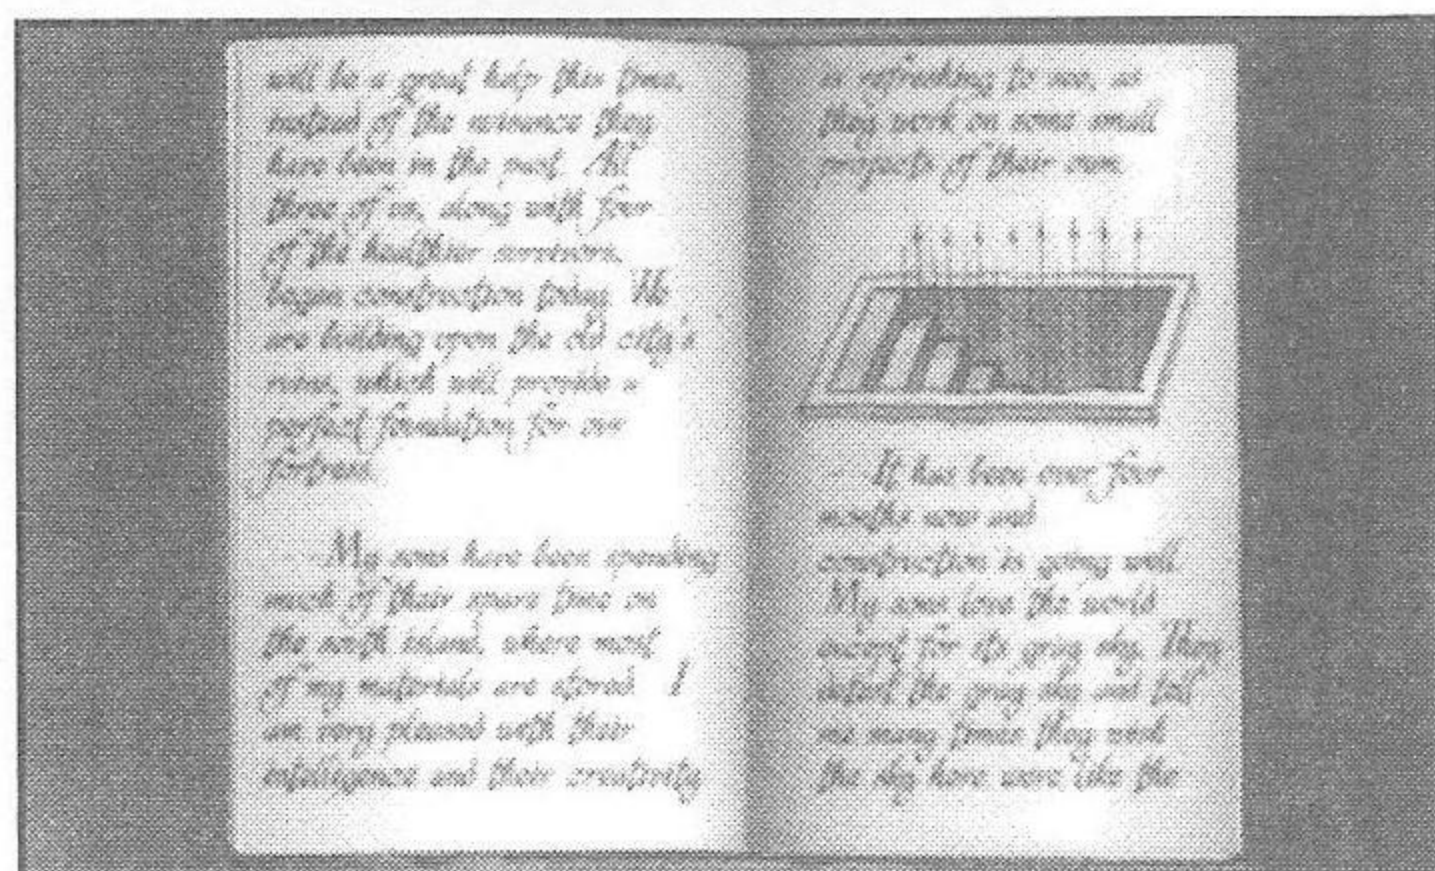 will be a great help this time,
instead of the nuisance they
have been in the past. All
three of us, along with four
of the healthier survivors,
began construction today. We
are building upon the old city's
ruins, which will provide a
perfect foundation for our
fortress.
My sons have been spending
much of their spare time on
the north island, where most
of my materials are stored. I
am very pleased with their
intelligence and their creativity
is refreshing to see, as
they work on some small
projects of their own.
It has been over four
months now and
construction is going well.
My sons love the world
except for its gray sky. They
detest the gray sky and tell
me many times they wish
the sky here were like the